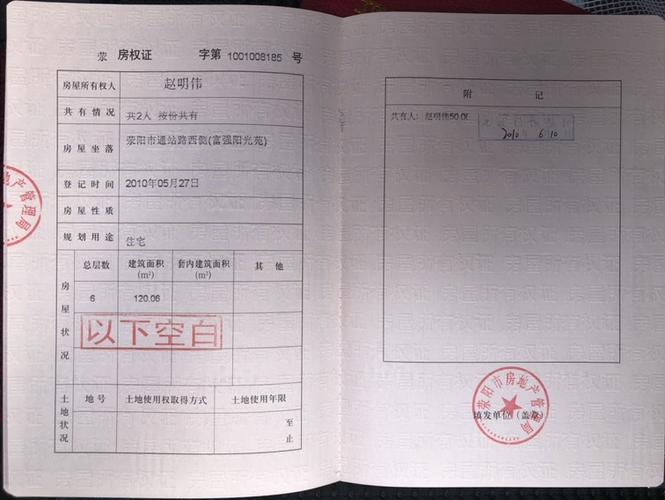 荥 房权证 字第 1001008185 号
房屋所有权人 赵明伟
共有情况 共2人 按份共有
房屋坐落 荥阳市通站路西侧(富强阳光苑)
登记时间 2010年05月27日
房屋性质
规划用途 住宅
房屋状况
总层数 建筑面积(m²) 套内建筑面积(m²) 其他
6 120.06
以下空白
土地状况
地号 土地使用权取得方式 土地使用年限
至
止
管理局
附 记
共有人: 赵明伟50.0
2010 6.10
荥阳市房地产管理局
填发单位(盖章)